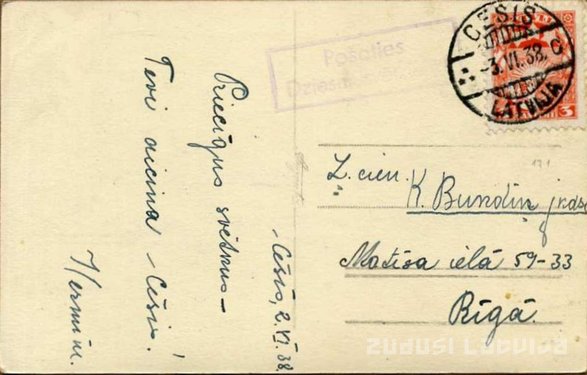 Priecīgus svētkus –
Tevi aicina – Cēsis!
– Cēsīs, 2. VI. 38.
Pošoties
CESIS
3. VI. 38.
C
LATVIJA
3
L. cien. K. Bundin
Matīsa ielā 59–33
Rīgā.
ZUDUSI LATVIJA